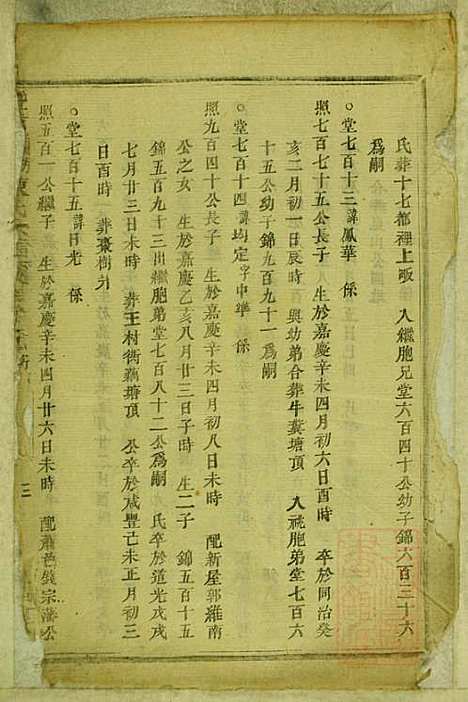 氏葬十七都裡上畈 入繼胞兄堂六百四十公幼子錦六百三十六
爲嗣
○堂七百十三諱鳳華 係
照七百七十五公長子 生於嘉慶辛未四月初六日酉時 卒於同治癸
亥二月初一日辰時 與幼弟合葬牛糞塘頂 入祧胞弟堂七百六
十五公幼子錦九百九十一爲嗣
○堂七百十四諱均定字中華 係
照九百四十公長子 生於嘉慶辛未四月初八日未時 配新屋郭維南
公之女 生於嘉慶乙亥八月廿三日子時 生二子 錦五百十五
錦五百九十三出繼胞弟堂七百八十二公爲嗣 氏卒於道光戊戌
七月廿三日未時 葬王村衖藕塘頂 公卒於咸豐己未正月初三
日酉時 葬棗樹爿
○堂七百十五諱日光 係
照五百一公繼子 生於嘉慶辛未四月廿六日未時 配蕭邑錢宗藩公
三